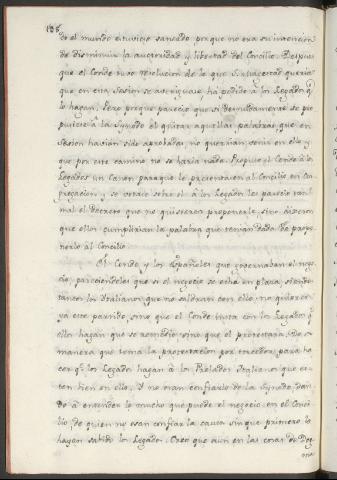 186
do el mundo estuviese sabeldo, porque no era su intencion
de disminuir la autoridad y libertad del Concilio. Despues
que el Conde tuvo resolucion de lo que S. Magestad queria
que en esta Sesion se hiciese ha pedido à los Legados q.
lo hagan. Pero porque parecio que si desnudamente se pro
pusiere à la Synodo el quitar aquellas palabras, que en
Sesion havian sido aprobadas, no querrian venir en ello, y
que por este camino no se haria nada. Propuso el Conde à los
Legados un Canon para que lo presentasen al Concilio en Con
gregacion, y se votase sobre el: à los Legados les parecio tan
mal el Decreto que no quisieron proponerle, sino dixeron
que ellos cumplirian la palabra que tenian dada de propo
nerlo al Concilio
El Conde y los Españoles que governaban el nego
cio, pareciendoles que si el negocio se echa en plaza siendo
tantos los Italianos que no saldrian con ello, no quieren
ya este partido, sino que el Conde insta con los Legados q.
ellos hagan que se remedie, sino que el protestará. De
manera que toma la protestacion por torcedor, para ha
cer q. los Legados hagan à los Prelados Italianos que
con en ello. Y no osan confiarlo de la Synodo, dan
do à entender lo mucho que puede el negocio en el Conci
lio, de quien no osan confiar la causa sin que primero lo
hayan sabido los Legados. Creo que aun en las cosas de Dog
ma